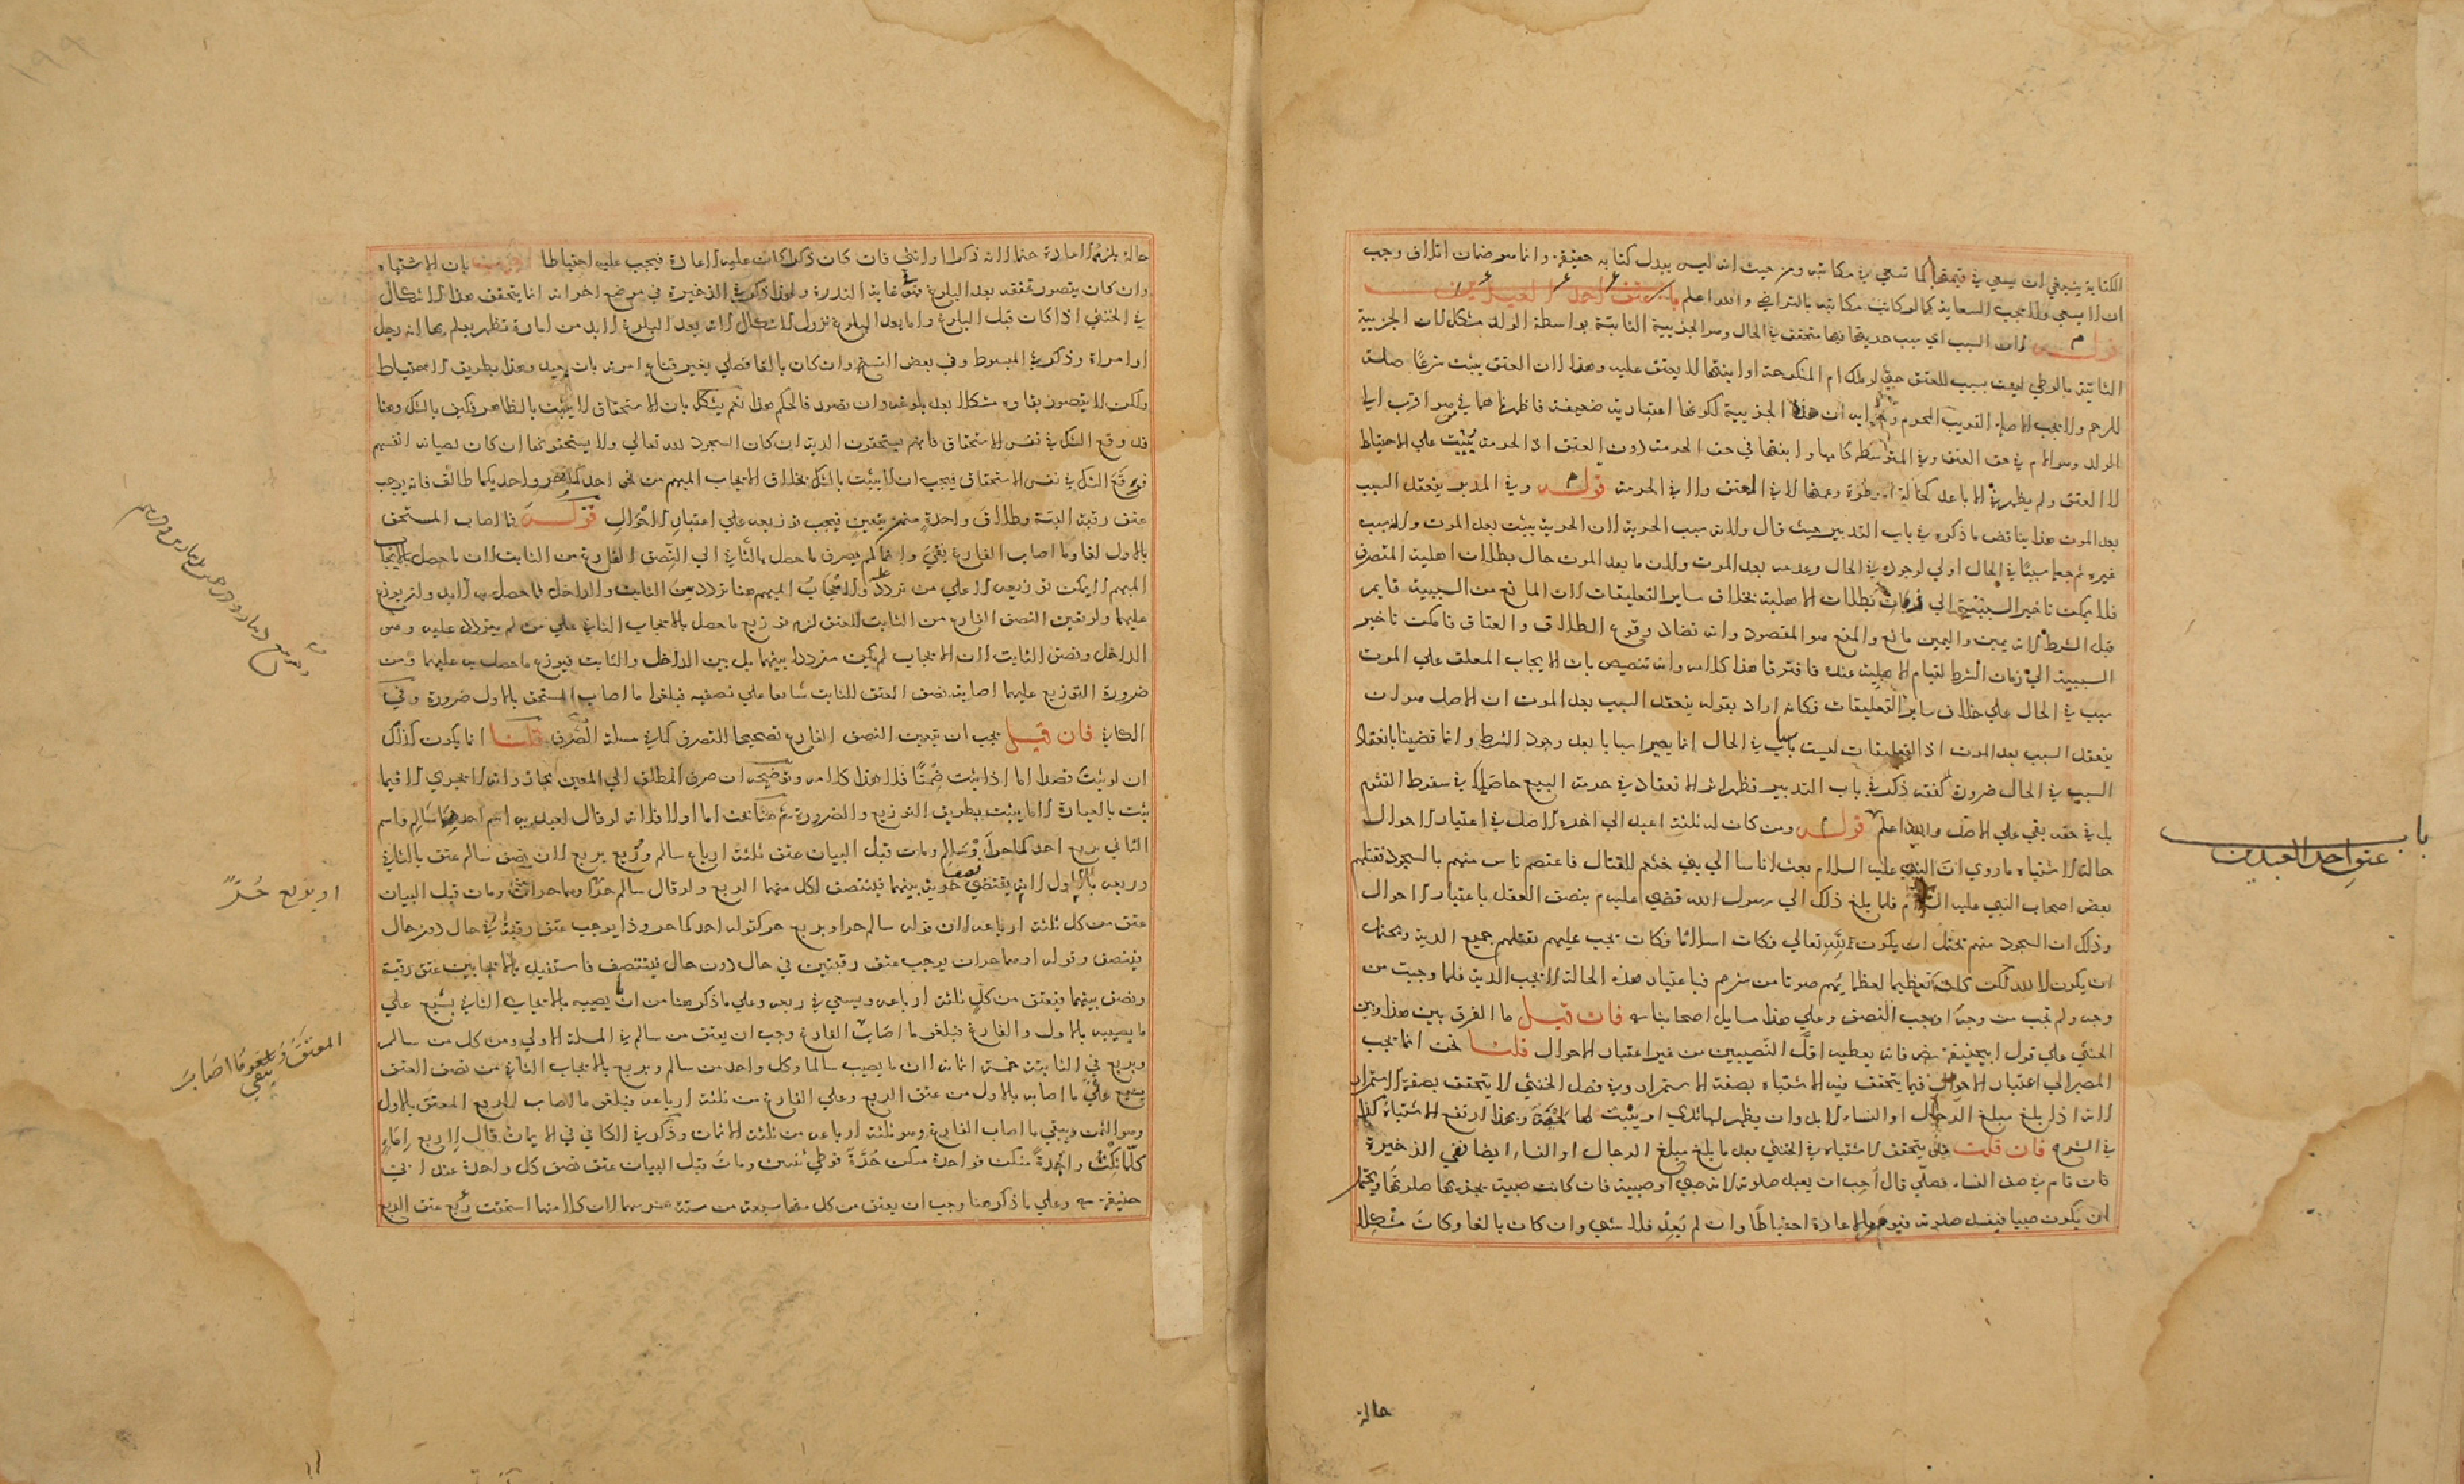 الكتابة ينبغي ان يسعي في قيمتها كما تسعي في مكاتبته ومن حيث انه ليس ببدل كتابة حقيقة وانما هو ضمان اتلاف وجب
ان لا يسعي ولا تجب السعاية كما لو كانت مكاتبته بالتراضي والله اعلم باب عتق احد العبدين
قوله لان السبب اي سبب حريتها فيها متحقق في الحال وهو الجزيية الثابتة بواسطة الولد مشكل لان الجزيية
الثابتة بالوطي ليست بسبب للعتق حتي لو ملك ام المنكوحة او ابنتها لا يعتق عليه وهذا لان العتق يثبت شرعا صلة
للرحم ولا تجب الا صلة القريب المحرم ان هذه الجزيية لكونها اعتبارية ضعيفة فاظهرناها في هو اقرب اليها
الولد وهو الام في حق العتق وفي المتوسطة كامها وابنتها في حق الحرمة دون العتق اذ الحرمة يثبت علي الاحتياط
لا العتق ولم يظهر في الاباعد لا في العتق ولا في الحرمة قوله وفي المدبر ينعقد السبب
بعد الموت هذا يناقض ما ذكره في باب التدبير حيث قال ولانه سبب الحرية لان الحرية يثبت بعد الموت ولا سبب
غيره ثم جعله سببا في الحال اولي لوجوده في الحال وعدمه بعد الموت ولان ما بعد الموت حال بطلان اهلية التصرف
فلا يمكن تاخير السببية الي زمان بطلان الاهلية بخلاف ساير التعليقات لان المانع من السببية قايم
قبل الشرط لانه يمين واليمين مانع والمنع هو المقصود وانه تضاد وقوع الطلاق والعتاق فامكن تاخير
السببية الي زمان الشرط لقيام الاهلية عنده فافترقا هذا كلامه وانه تنصيص بان الايجاب المعلق علي الموت
سبب في الحال علي خلاف ساير التعليقات فكانه اراد بقوله ينعقد السبب بعد الموت ان الاصل هو ان
ينعقد السبب بعد الموت اذ التعليقات ليست باسباب في الحال انما يصير اسبابا بعد وجود الشرط وانما قضينا بانعقاد
السبب في الحال ضرورة ذكر في باب التدبير فظهر اثر الانعقاد في حرمة البيع حاصله في سقوط التقوم
بل في حقه بقي علي الاصل والله اعلم قوله ومن كان له ثلثة اعبد الي اخره الاصل في اعتبار الاحوال
حالة الاشتباه ما روي ان النبي عليه السلام بعث اناسا الي بني خثعم للقتال فاعتصم ناس منهم بالسجود فقتلهم
بعض اصحاب النبي عليه السلام فلما بلغ ذلك الي رسول الله قضي عليهم بنصف العقل باعتبار الاحوال
وذلك ان السجود منهم يحتمل ان يكون لله تعالي فكان اسلاما فكان تجب عليهم بقتلهم جميع الدية ويحتمل
ان يكون لا لله لكن كان تعظيما لعظمائهم صونا من شرهم فباعتبار هذه الحالة لا تجب الدية فلما وجبت من
وجه ولم تجب من وجه اوجب النصف وعلي هذا مسايل اصحابنا فان قيل ما الفرق بين هذا وبين
الخنثي علي قول ابي حنيفة فانه يعطيه اقل النصيبين من غير اعتبار الاحوال قلنا نحن انما نجب
المصير الي اعتبار الاحوال فيما يتحقق فيه الاشتباه بصفة الاستمرار وفي فصل الخنثي لا يتحقق بصفة الاستمرار
لانه اذا بلغ مبلغ الرجال او النساء لا بد وان يظهر لها ثدي او ينبت لها لحية وبهذا ارتفع الاشتباه كذا
في الشرح فان قلت يتحقق الاشتباه في الخنثي بعد ما بلغ مبلغ الرجال او النساء ايضا ففي الذخيرة
فان قام في صف النساء فصلي قال احب ان يعيد صلوته لانه صبي او صبية فان كانت صبية تجزيها صلوتها ويحتمل
ان يكون صبيا فيفسد صلوته فيومر بالاعادة احتياطا وان لم يعد فلا شي وان كان بالغا وكان مشكلا
حالة
باب
عتق احد العبدين
حالة يلزمه الاعادة حتما لانه ذكر او انثي فان كان ذكرا كانت عليه الاعادة فيجب عليه احتياطا بان الاشتباه
وان كان يتصور تحققه بعد البلوغ فهو في غاية الندرة ولهذا ذكر في الذخيرة في موضع اخر انه انما يتحقق هذا الاشكال
في الخنثي اذا كان قبل البلوغ واما بعد البلوغ نزول الاشكال لانه بعد البلوغ لا بد من امارة تظهر يعلم بها انه رجل
او امراة وذكر في المبسوط وفي بعض النسخ وان كان بالغا فصلي بغير قناع امرته بان يعيد وهذا بطريق الاحتياط
ولكن لا يتصور بقاوه مشكلا بعد بلوغه وان تصور فالحكم هذا نعم يشكل بان الاستحقاق لا يثبت بالظاهر فكيف بالشك وهنا
قد وقع الشك في نفس الاستحقاق فانهم يستحقون الدية ان كان السجود لله تعالي ولا يستحقونها ان كان لصيانة انفسهم
فوقع الشك في نفس الاستحقاق فيجب ان لا يثبت بالشك بخلاف الايجاب المبهم من نحو احدكما حر واحديكما طالق فانه يوجب
عتق رقبة البتة وطلاق واحدة منهن بتعين فيجب توزيعه علي اعتبار الاحوال قوله فما اصاب المستحق
بالاول لغا وما اصاب الفارغ بقي وانما لم يصرف ما حصل بالثاني الي النصف الفارغ من الثابت لان ما حصل بالايجاب
المبهم لا يمكن توزيعه الا علي من تردد والايجاب المبهم هنا تردد بين الثابت والداخل فما حصل به لا بد وان يوزع
عليهما ولو تعين النصف الفارغ من الثابت للعتق لزم توزيع ما حصل بالايجاب الثاني علي من لم يتردد عليه وهو
الداخل ونصف الثابت لان الايجاب لم يكن مترددا بينهما بل بين الداخل والثابت فيوزع ما حصل به عليهما ومن
ضرورة التوزيع عليهما اصابة نصف العتق للثابت شايعا علي نصفيه فيلغوا ما اصاب المستحق بالاول ضرورة وفي
الثاني فان قيل يجب ان يتعين النصف الفارغ تصحيحا للتصرف كما في مسلة الصرف قلنا انما يكون كذلك
ان لو ثبت قصدا اما اذا ثبت ضمنا فلا هذا كلامه وتوضيحه ان صرف المطلق الي المعين مجاز وانه لا يجري الا فيما
يثبت بالعبارة لا ما يثبت بطريق التوزيع والضرورة ثم هنا بحث اما اولا فلانه لو قال لعبديه اسم احدهما سالم واسم
الثاني بربع احدكما حر وسالم ومات قبل البيان عتق ثلثة ارباع سالم وربع بربع لان نصف سالم عتق بالثاني
وربعه بالاول لانه يقتضي حرية بينهما فينتصف لكل منهما الربع ولو قال سالم حر او هما حران ومات قبل البيان
عتق من كل ثلثة ارباعه لان قوله سالم حر او بربع حر كقوله احدكما حر وذا يوجب عتق رقبة في حال دون حال
فينصف وقوله او هما حران يوجب عتق رقبتين في حال دون حال فينتصف فاستفيد بالايجابين عتق رقبة
ونصف بينهما فيعتق من كل ثلثة ارباعه ويسعي في ربعه وعلي ما ذكر هنا من ان ما يصيبه بالايجاب الثاني يشيع علي
ما يصيبه بالاول والفارغ فيلغو ما اصاب الفارغ وجب ان يعتق من سالم في المسلة الاولي ومن كل من سالم
وبربع في الثانية خمسة اثمانه لان ما يصيب سالما وكل واحد من سالم وبربع بالايجاب الثاني من نصف العتق
يشيع علي ما اصابه بالاول من عتق الربع وعلي الفارغ من ثلثة ارباعه فيلغو ما اصاب الربع المعتق بالاول
وهو الثمن ويبقي ما اصاب الفارغ وهو ثلثة ارباعه من ثلثة الاثمان وذكر في الكافي في الايمان قال لاربع اماء
كلما نكت واحدة منكن فواحدة منكن حرة فوطي ثنتين ومات قبل البيان عتق نصف كل واحدة عند ابي
حنيفة وعلي ما ذكر هنا وجب ان يعتق من كل منها سبعة من ستة عشر سهما لان كلا منها استحقت ربع عتق الربع
او بربع حر
المعتق ويلغو ما اصاب
يبقي